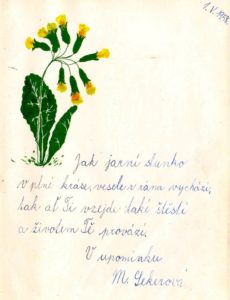 1. V. 1958
Jak jarní slunko
v plné kráse, vesele z rána vychází,
tak ať Ti vzejde také štěstí
a životem Tě provází.
V upomínku
M. Sekerová